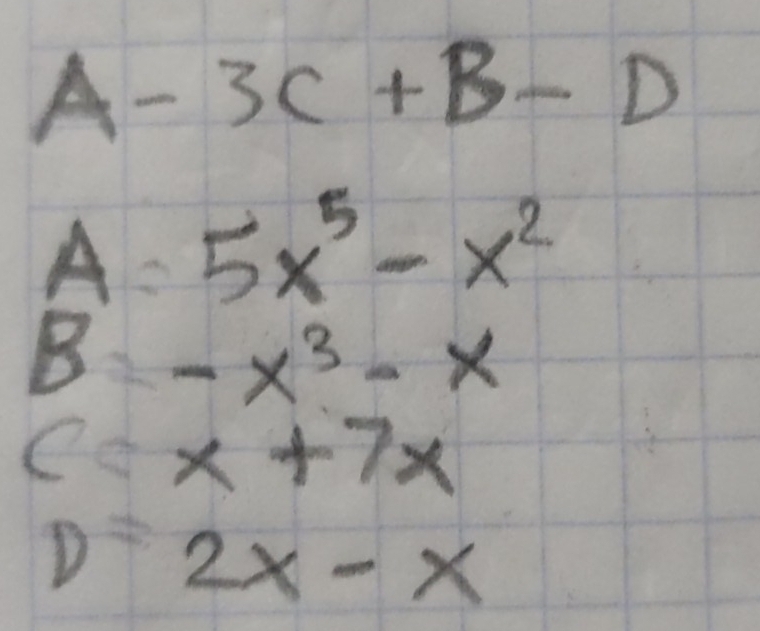 A - 3C + B - D
A = 5x⁵ - x²
B = - x³ - x
C = x + 7x
D = 2x - x